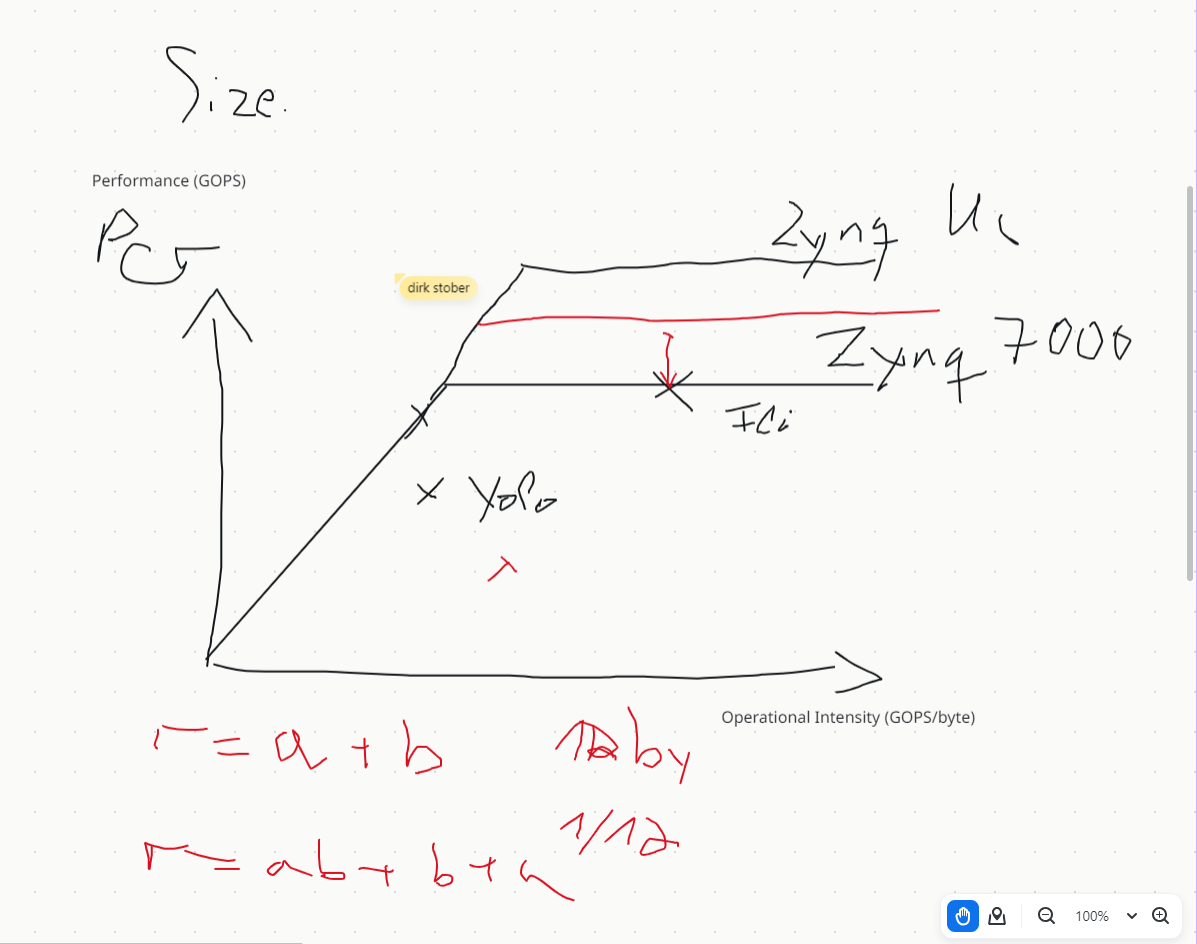 Size.
Performance (GOPS)
Zynq
dirk stober
Zynq 7000
Yolo
Operational Intensity (GOPS/byte)
r = a + b
12 by
r = ab + b + a
1/12
100%